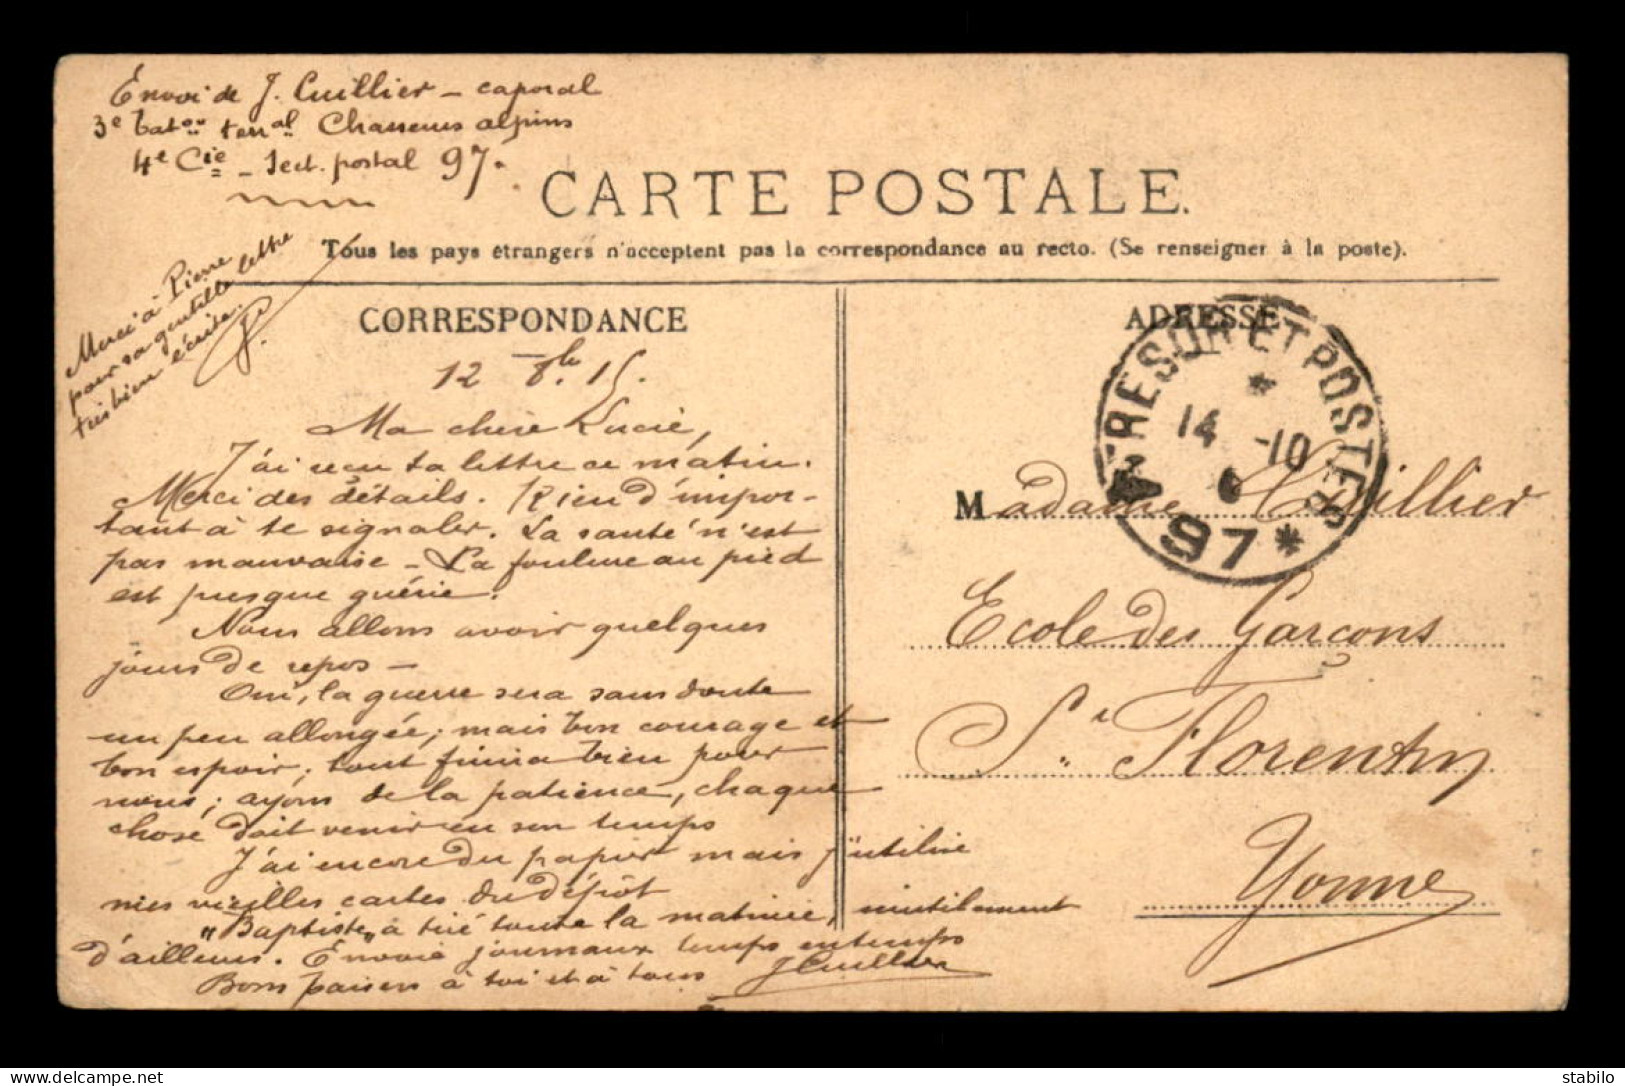 Envoi de J. Cuillier - caporal
3e Baton terral Chasseurs alpins
4e Cie - Sect. postal 97.
CARTE POSTALE.
Tous les pays étrangers n'acceptent pas la correspondance au recto. (Se renseigner à la poste).
Merci à Pierre
pour sa gentille lettre
très bien écrite.
J.
CORRESPONDANCE
12 8bre 15.
Ma chère Lucie,
J'ai reçu ta lettre ce matin.
Merci des détails. Rien d'impor-
tant à te signaler. La santé n'est
pas mauvaise - La foulure au pied
est presque guérie.
Nous allons avoir quelques
jours de repos -
Oui, la guerre sera sans doute
un peu allongée; mais bon courage et
bon espoir; tout finira bien pour
nous; ayons de la patience, chaque
chose doit venir en son temps
J'ai encore du papier mais j'utilise
mes vieilles cartes du dépôt
"Baptiste" a tiré toute la matinée, inutilement
d'ailleurs. Envoie journaux temps en temps
Bons baisers à toi et à tous
J Cuillier
ADRESSE
TRESOR ET POSTES
14 -10
97
Madame Cuillier
Ecole des Garçons
St Florentin
Yonne
stabilo